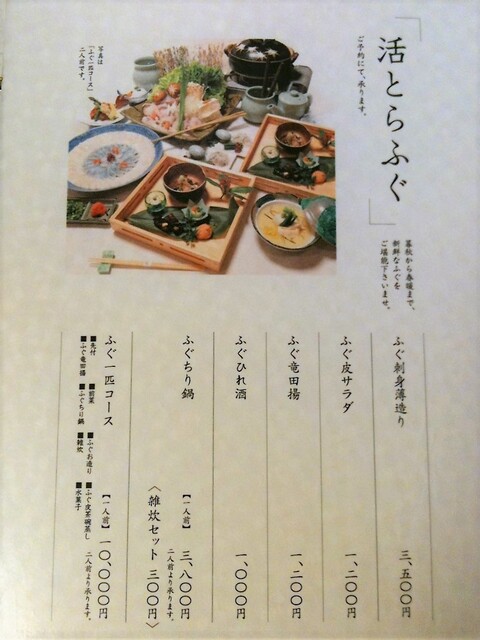 「活とらふぐ」
ご予約にて、承ります。
写真は
「ふぐ一匹コース」
二人前です。
暮秋から春暖まで、
新鮮なふぐを
ご堪能下さいませ。
ふぐ刺身薄造り 三、五〇〇円
ふぐ皮サラダ 一、二〇〇円
ふぐ竜田揚 一、二〇〇円
ふぐひれ酒 一、〇〇〇円
ふぐちり鍋 【一人前】 三、八〇〇円
二人前より承ります。
〈雑炊セット 三〇〇円〉
ふぐ一匹コース 【一人前】 一〇、〇〇〇円
二人前より承ります。
■先付 ■前菜 ■ふぐお造り ■ふぐ皮茶碗蒸し
■ふぐ竜田揚 ■ふぐちり鍋 ■雑炊 ■水菓子